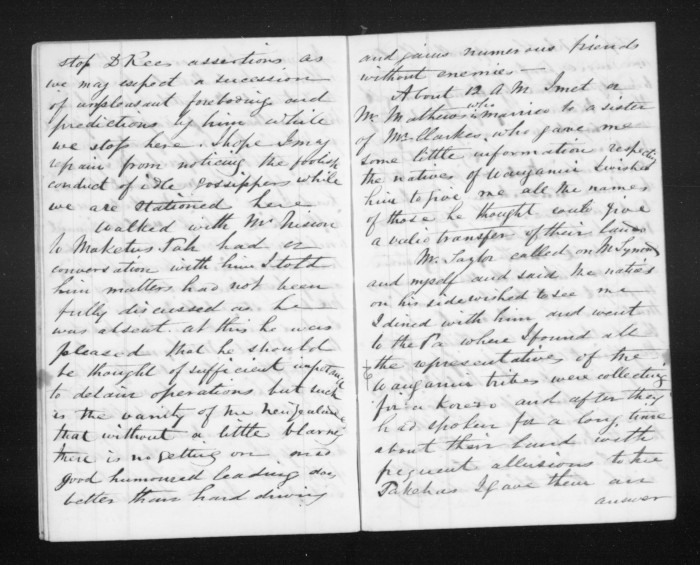 stop D Rees assertions as
we may expect a sucession
of unpleasant foreboding and
predictions by him while
we stop here. I hope I may
refrain from noticing the foolish
conduct of idle gossippers while
we are stationed here
Walked with Mr
to Maketus Pah had a
conversation with him I told
him matters had not been
fully discussed as he
was absent. at this he was
pleased that he should
be thought of sufficient
to detain operations but such
is the vanity of the New Zealander
that without a little blarney
there is no getting on and
good humoured leading does
better than hard driving
and gains numerous friends
without enemies
About 12 A M I met a
Mr Mathews who is married to a sister
of Mr Clarkes, who gave me
some little information respecting
the natives of Wanganui I wished
him to give me all the names
of those he thought could give
a valid transfer of their land
Mr Taylor called on Mr Symonds
and myself and said the natives
on his side wished to see me
I dined with him and went
to the Pa where I found all
the representatives of the
Wanganui tribes were collecting
for a Korero and after they
had spoken for a long time
about their land with
frequent allusions to the
Pakehas I gave them an
answer